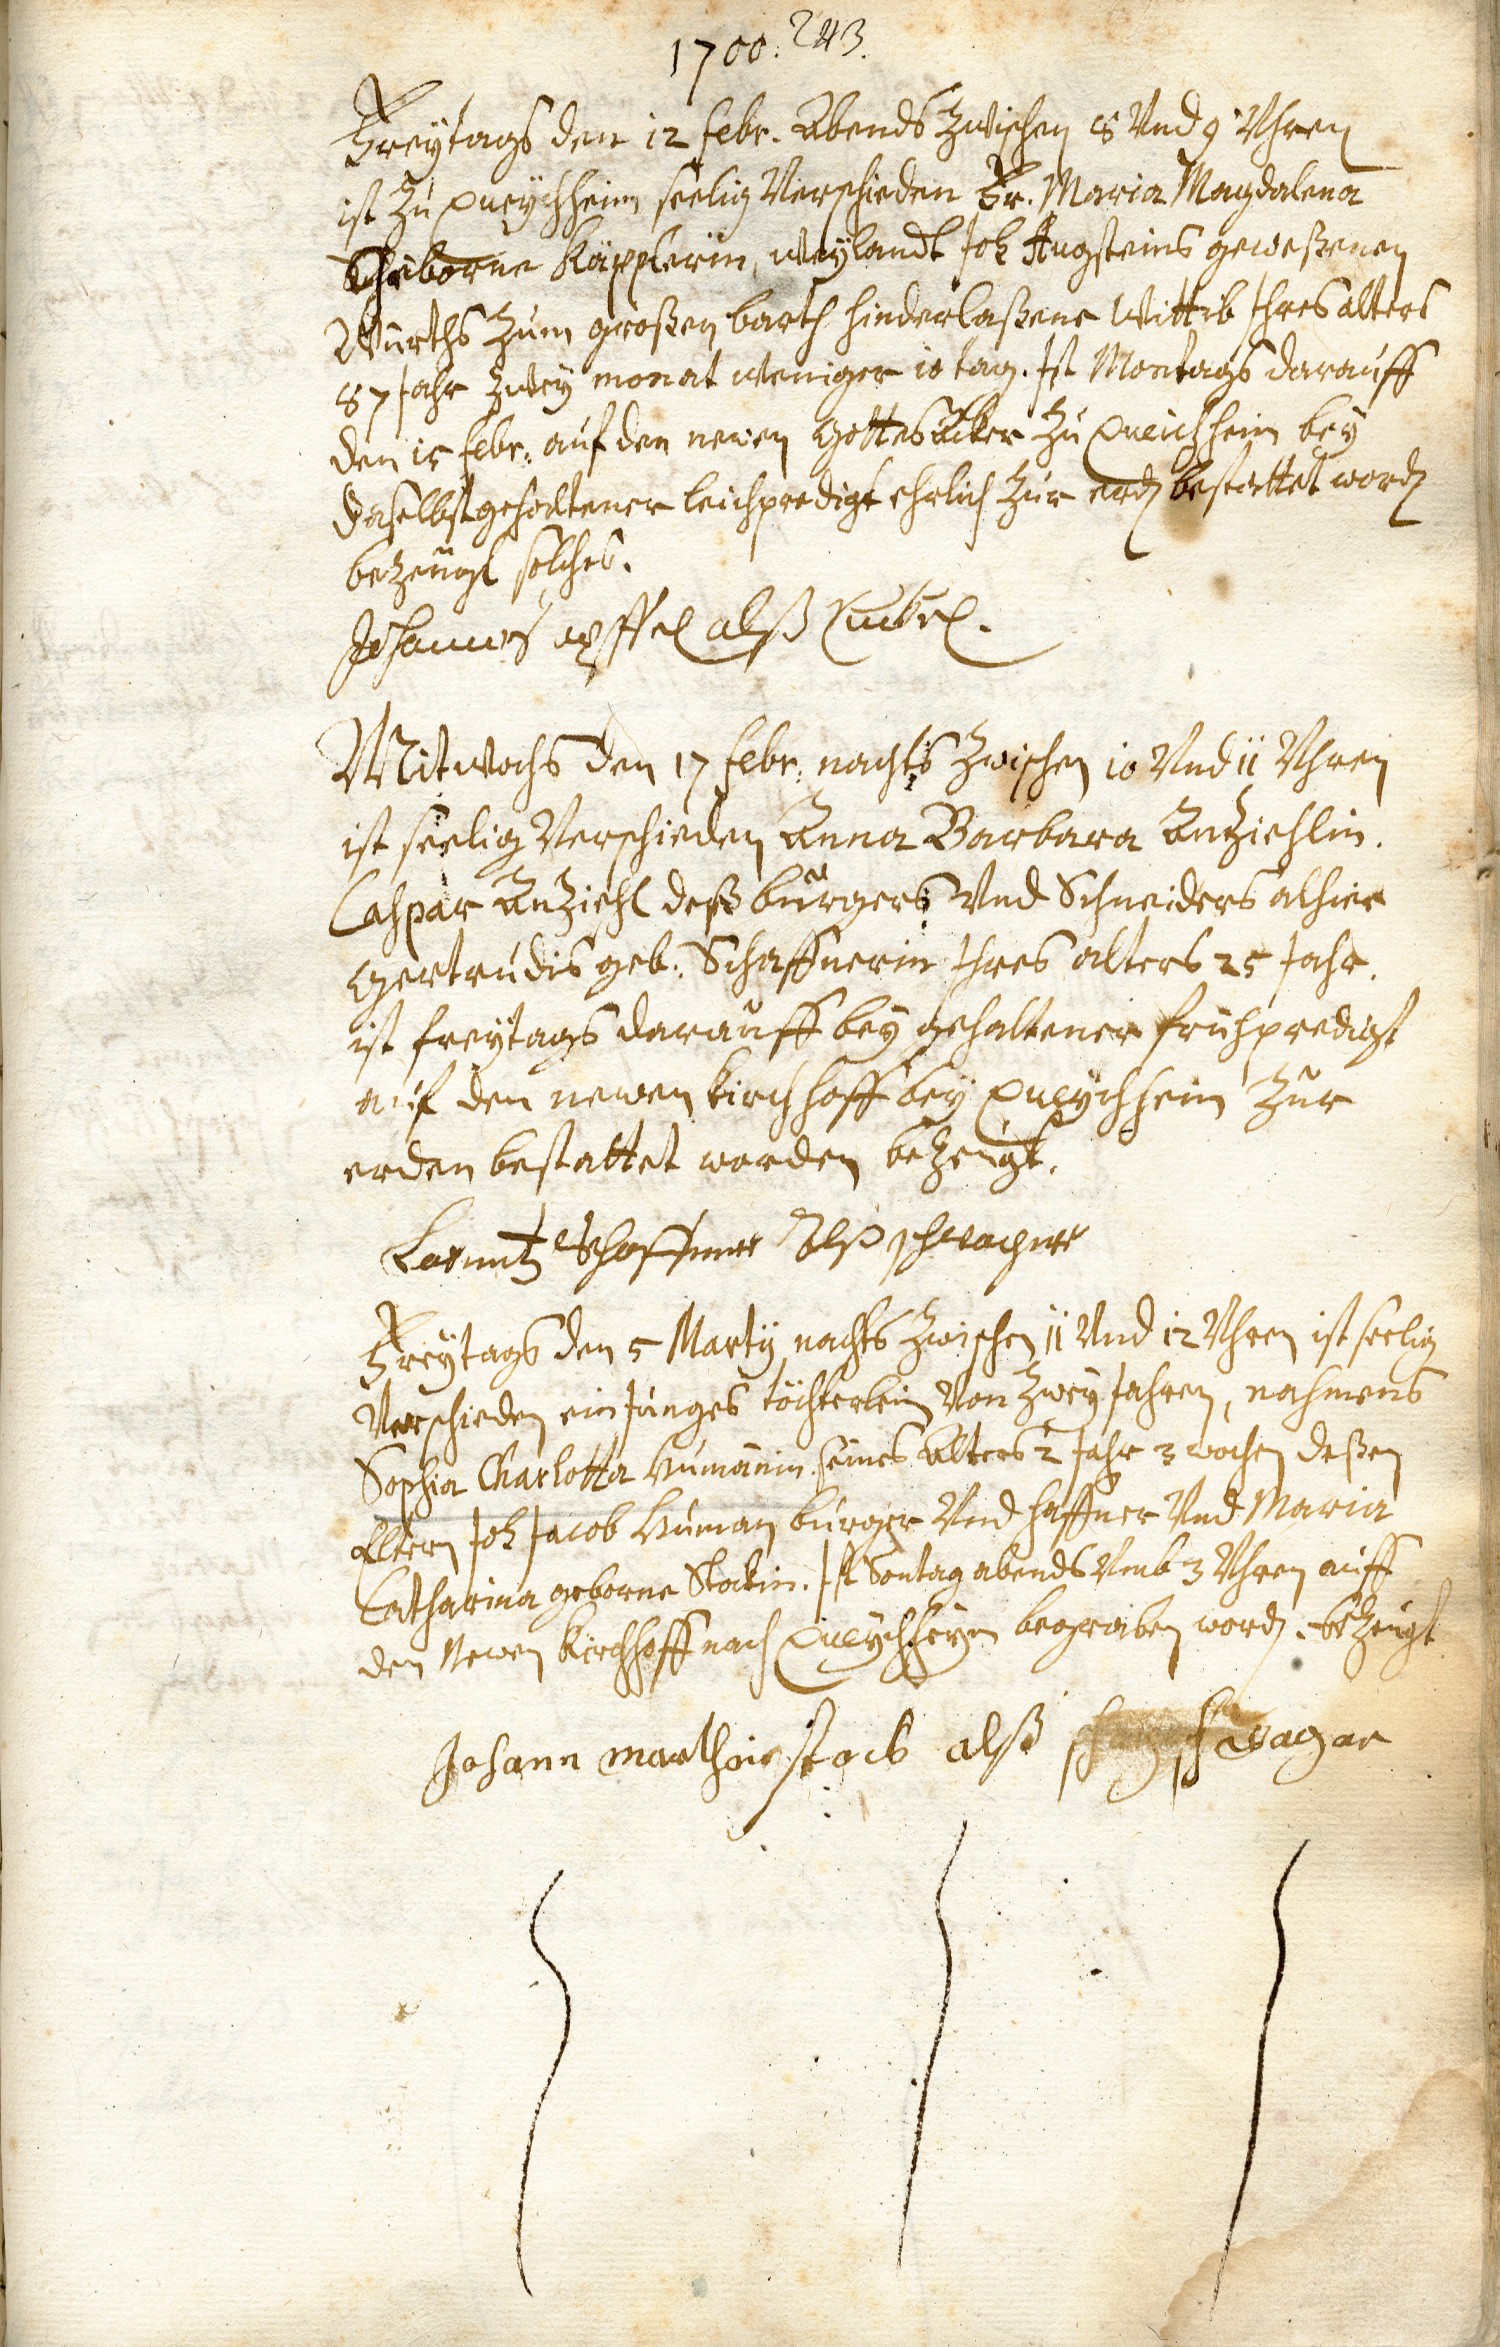 1700. 243.
Freytags den 12 febr. Abends zwischen 8 Und 9 Uhren
ist zu Queychheim seelig Verschieden Fr. Maria Magdalena
geborne Käpplerin, weylandt Joh Augsteins geweßenen
Würths zum großen barth hinderlaßene Wittib Ihres alters
87 Jahr zwey monat weniger 10 tag. Ist Montags darauff
den 15 febr. auf den newen Gottesäcker zu Queichheim bey
daselbst gehaltener leichpredigt ehrlich zur erd bestattet word
bezeugt solches.
Johannes alß
Mitwochs den 17 febr. nachts zwischen 10 Und 11 Uhren
ist seelig Verschieden Anna Barbara Anziehlin.
Caspar Anziehl deß burgers Und Schneiders alhier
Gertrudis geb. Schaffnerin Ihres alters 25 Jahr.
ist freytags darauff bey gehaltener frühpredigt
auf den newen kirchhoff bey Queychheim zur
erden bestattet worden bezeugt.
Lorentz Schaffner Alß schwager
Freytags den 5 Marty nachts zwischen 11 Und 12 Uhren ist seelig
Verschieden ein Junges töchterlein Von zwey Jahren, nahmens
Sophia Charlotta Humännin seines Alters 2 Jahr 3 wochen deßen
Eltern Joh Jacob Human burger Und haffner Und Maria
Catharina geborne Stockin. Ist Sontag abends Umb 3 Uhren auff
den Newen Kirchhoff nach Queychheym begraben word. bezeugt
Johann marthin stock alß schwager